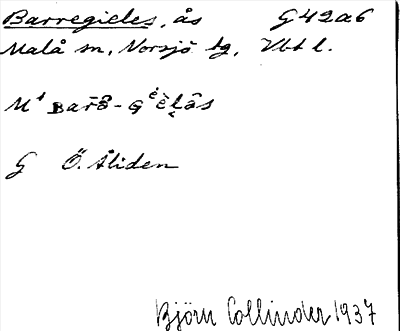 Barregieles, ås G42a6
Malå sn, Norsjö tg, Vbt l.
G Ö. Åliden
Björn Collinder 1937